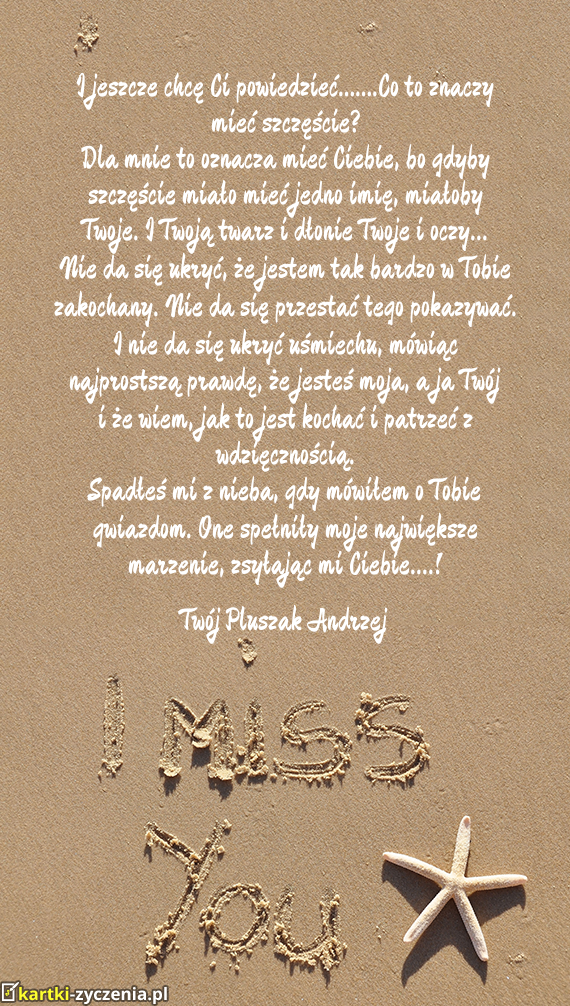 I jeszcze chcę Ci powiedzieć.......Co to znaczy
mieć szczęście?
Dla mnie to oznacza mieć Ciebie, bo gdyby
szczęście miało mieć jedno imię, miałoby
Twoje. I Twoją twarz i dłonie Twoje i oczy...
Nie da się ukryć, że jestem tak bardzo w Tobie
zakochany. Nie da się przestać tego pokazywać.
I nie da się ukryć uśmiechu, mówiąc
najprostszą prawdę, że jesteś moja, a ja Twój
i że wiem, jak to jest kochać i patrzeć z
wdzięcznością.
Spadłeś mi z nieba, gdy mówiłem o Tobie
gwiazdom. One spełniły moje największe
marzenie, zsyłając mi Ciebie....!
Twój Pluszak Andrzej
I miss
You
kartki-zyczenia.pl